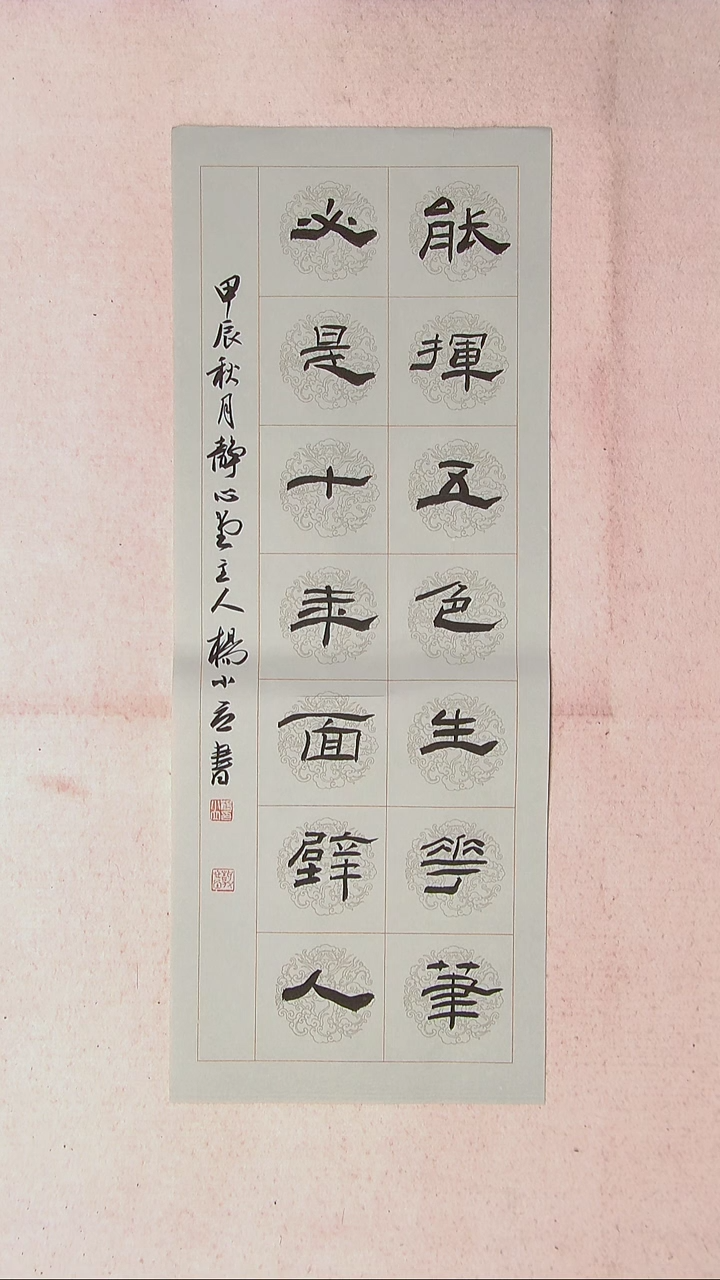 能揮五色生花筆
必是十年面壁人
甲辰秋月靜心堂主人楊小立書